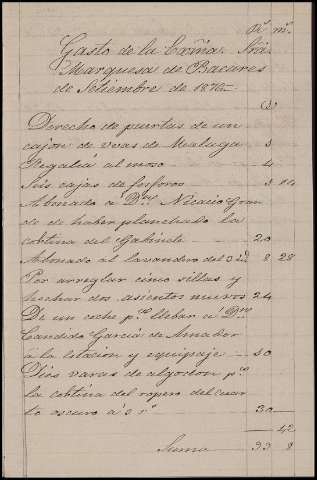 Rs. ms.
Gasto de la Exma. Sra.
Marquesa de Bacares
de Setiembre de 187
Derecho de puertas de un
cajon de uvas de Malaga 3
Regalia al moso 4
Seis cajas de fosforos 3 14
Abonado a Dn. Nicacio Gran
de de haber planchado la
cortina del Gabinete 20
Abonado al lavandero del 8 28
Por arreglar cinco sillas y
hechar dos asientos nuevos 24
De un coche pa. llebar a Dn.
Candido Garcia de Amador
a la estacion y equipaje 10
Dies varas de algodon pa.
la cortina del ropero del cuar
to oscuro a 3 rs. 30
42
Suma 8